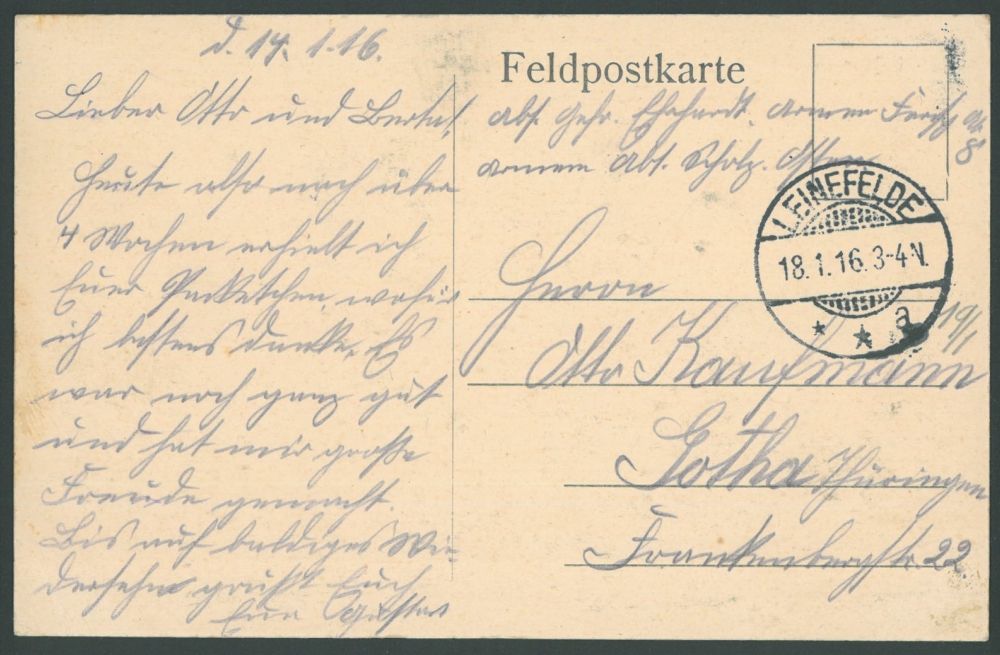 d. 14. 1. 16.
Lieber Otto und Berta!
Heute also nach über
4 Wochen erhielt ich
Euer Packetchen, wofür
ich bestens danke. Es
war noch ganz gut
und hat mir große
Freude gemacht.
Bis auf baldiges Wie-
dersehn grüßt Euch
Euer Gustav
Feldpostkarte
Abs. Gefr. Ehrhardt. Armee
8
Armee Abt. Scholz.
LEINEFELDE
18.1.16. 3-4 N.
* * a
19/1
Herrn
Otto Kaufmann
Gotha Thüringen
Frankenbergstr. 22